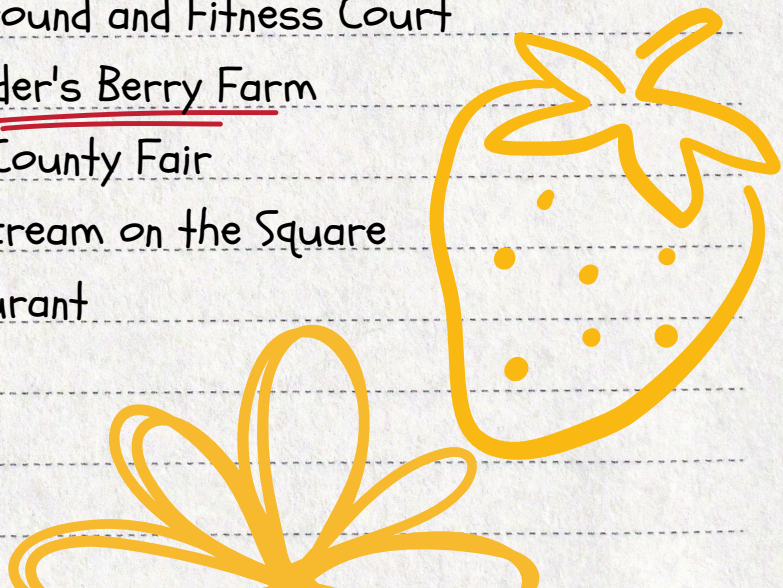 ound and Fitness Court
der's Berry Farm
County Fair
cream on the Square
urant